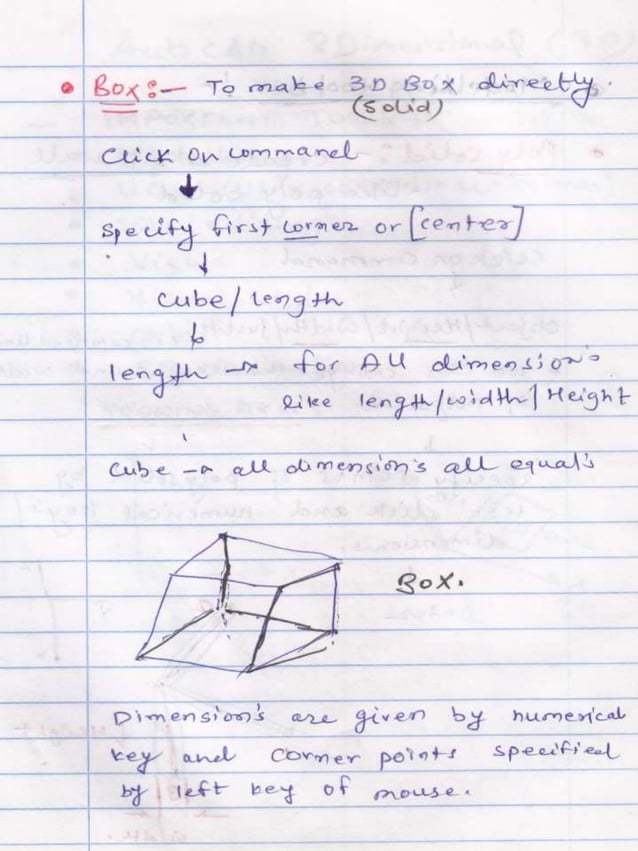 • Box:- To make 3D Box directly.
(Solid)
Click on command
Specify first corner or [center]
Cube/length
length → for All dimension's
like length/width/Height
Cube → all dimension's all equal's
Box.
Dimension's are given by numerical
key and corner points specified
by left key of mouse.